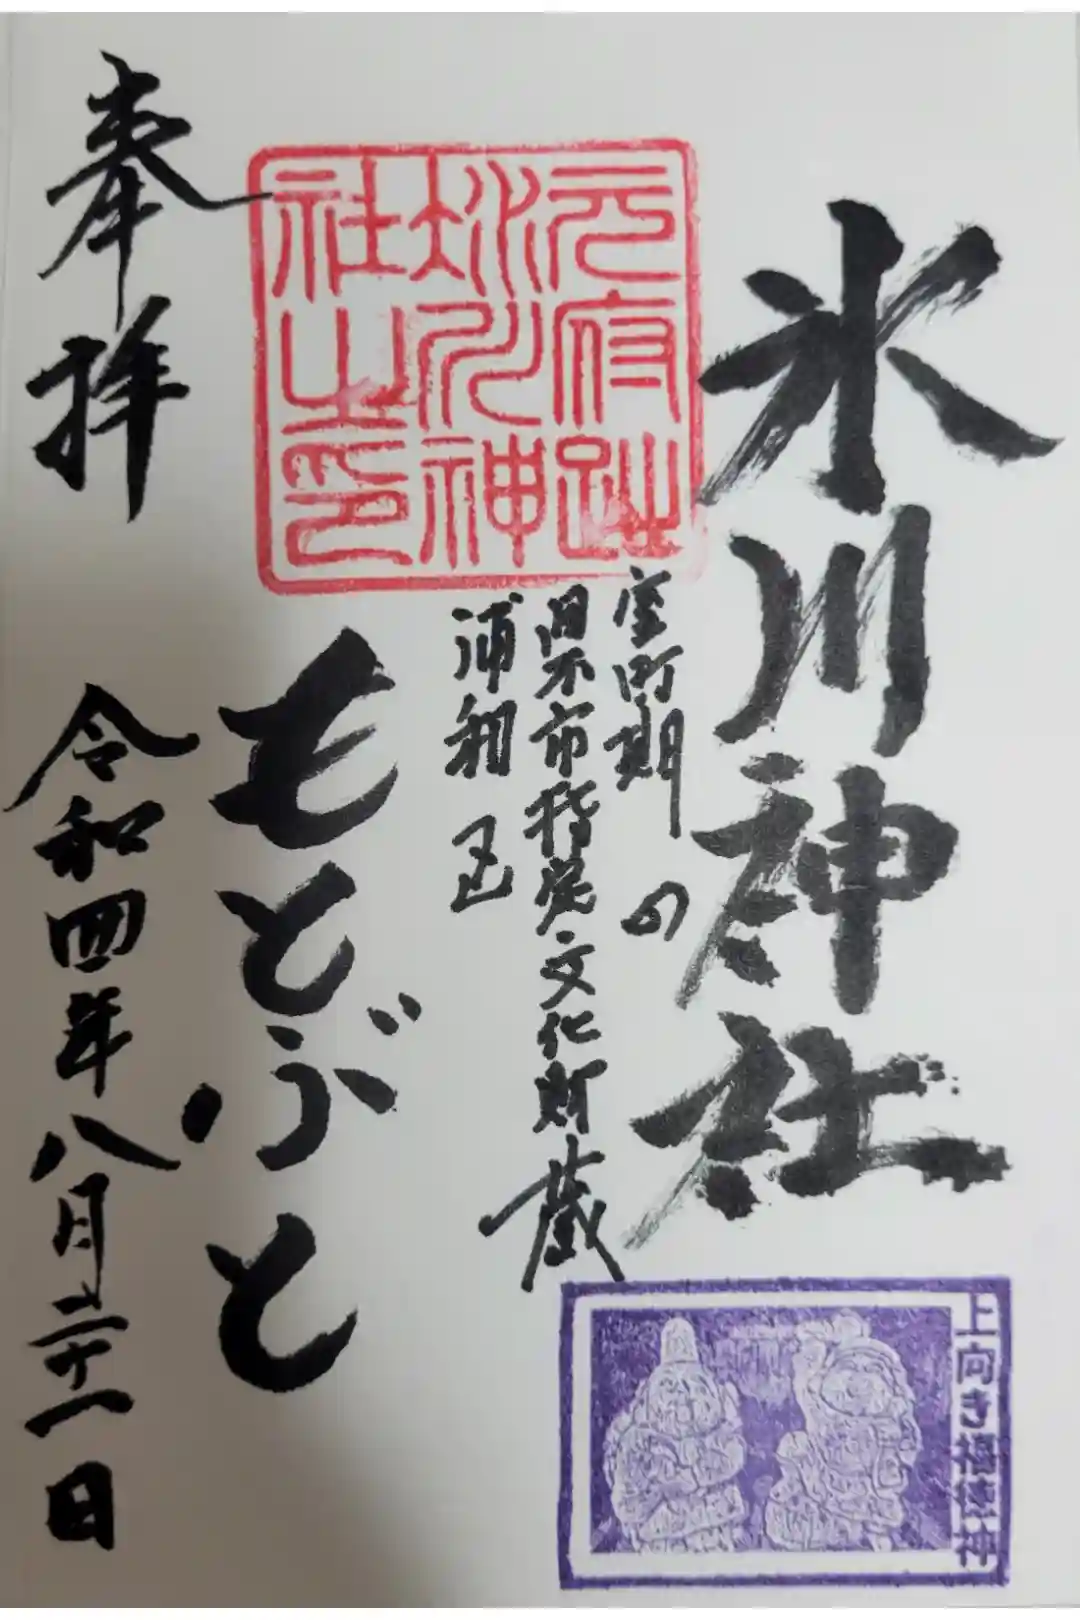 氷川神社
元府趾
氷川神
社之印
室町期の
県市指定文化財蔵
浦和区
もとぶと
奉拝
令和四年八月二十一日
上向き福徳神